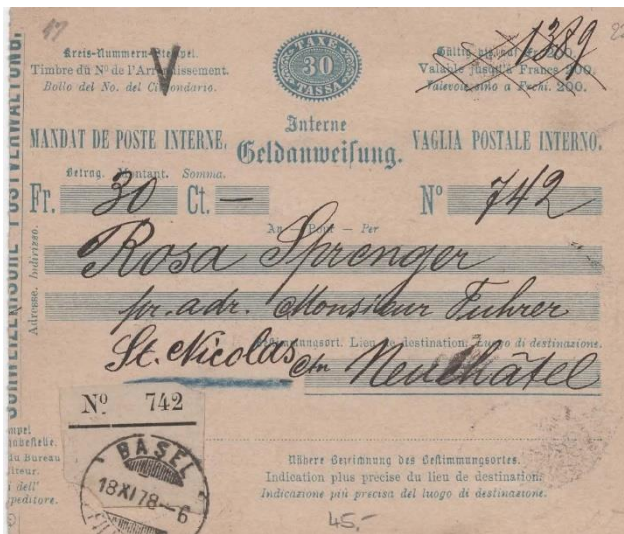 17
Kreis-Nummern-Stempel.
Timbre du No de l'Arrondissement.
Bollo del No. del Circondario.
V
TAXE
30
TASSA
1389
Valable jusqu'à Francs 200.
Valevole sino a Fchi. 200.
MANDAT DE POSTE INTERNE.
Interne
Geldanweisung.
VAGLIA POSTALE INTERNO.
Betrag. Montant. Somma.
Fr. 30 Ct. —
No 742
An — Pour — Per
Rosa Sprenger
pr. adr. Monsieur Fuhrer
Bestimmungsort. Lieu de destination. Luogo di destinazione.
St. Nicolas Ctn Neuchâtel
Adresse. Indirizzo.
SCHWEIZERISCHE POSTVERWALTUNG.
No 742
BASEL
18 XI 78 – 6
Nähere Bezeichnung des Bestimmungsortes.
Indication plus précise du lieu de destination.
Indicazione più precisa del luogo di destinazione.
du Bureau
dell'
45,-